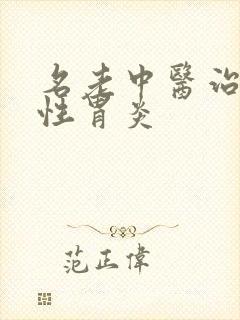 名老中醫治
性胃炎
范正偉